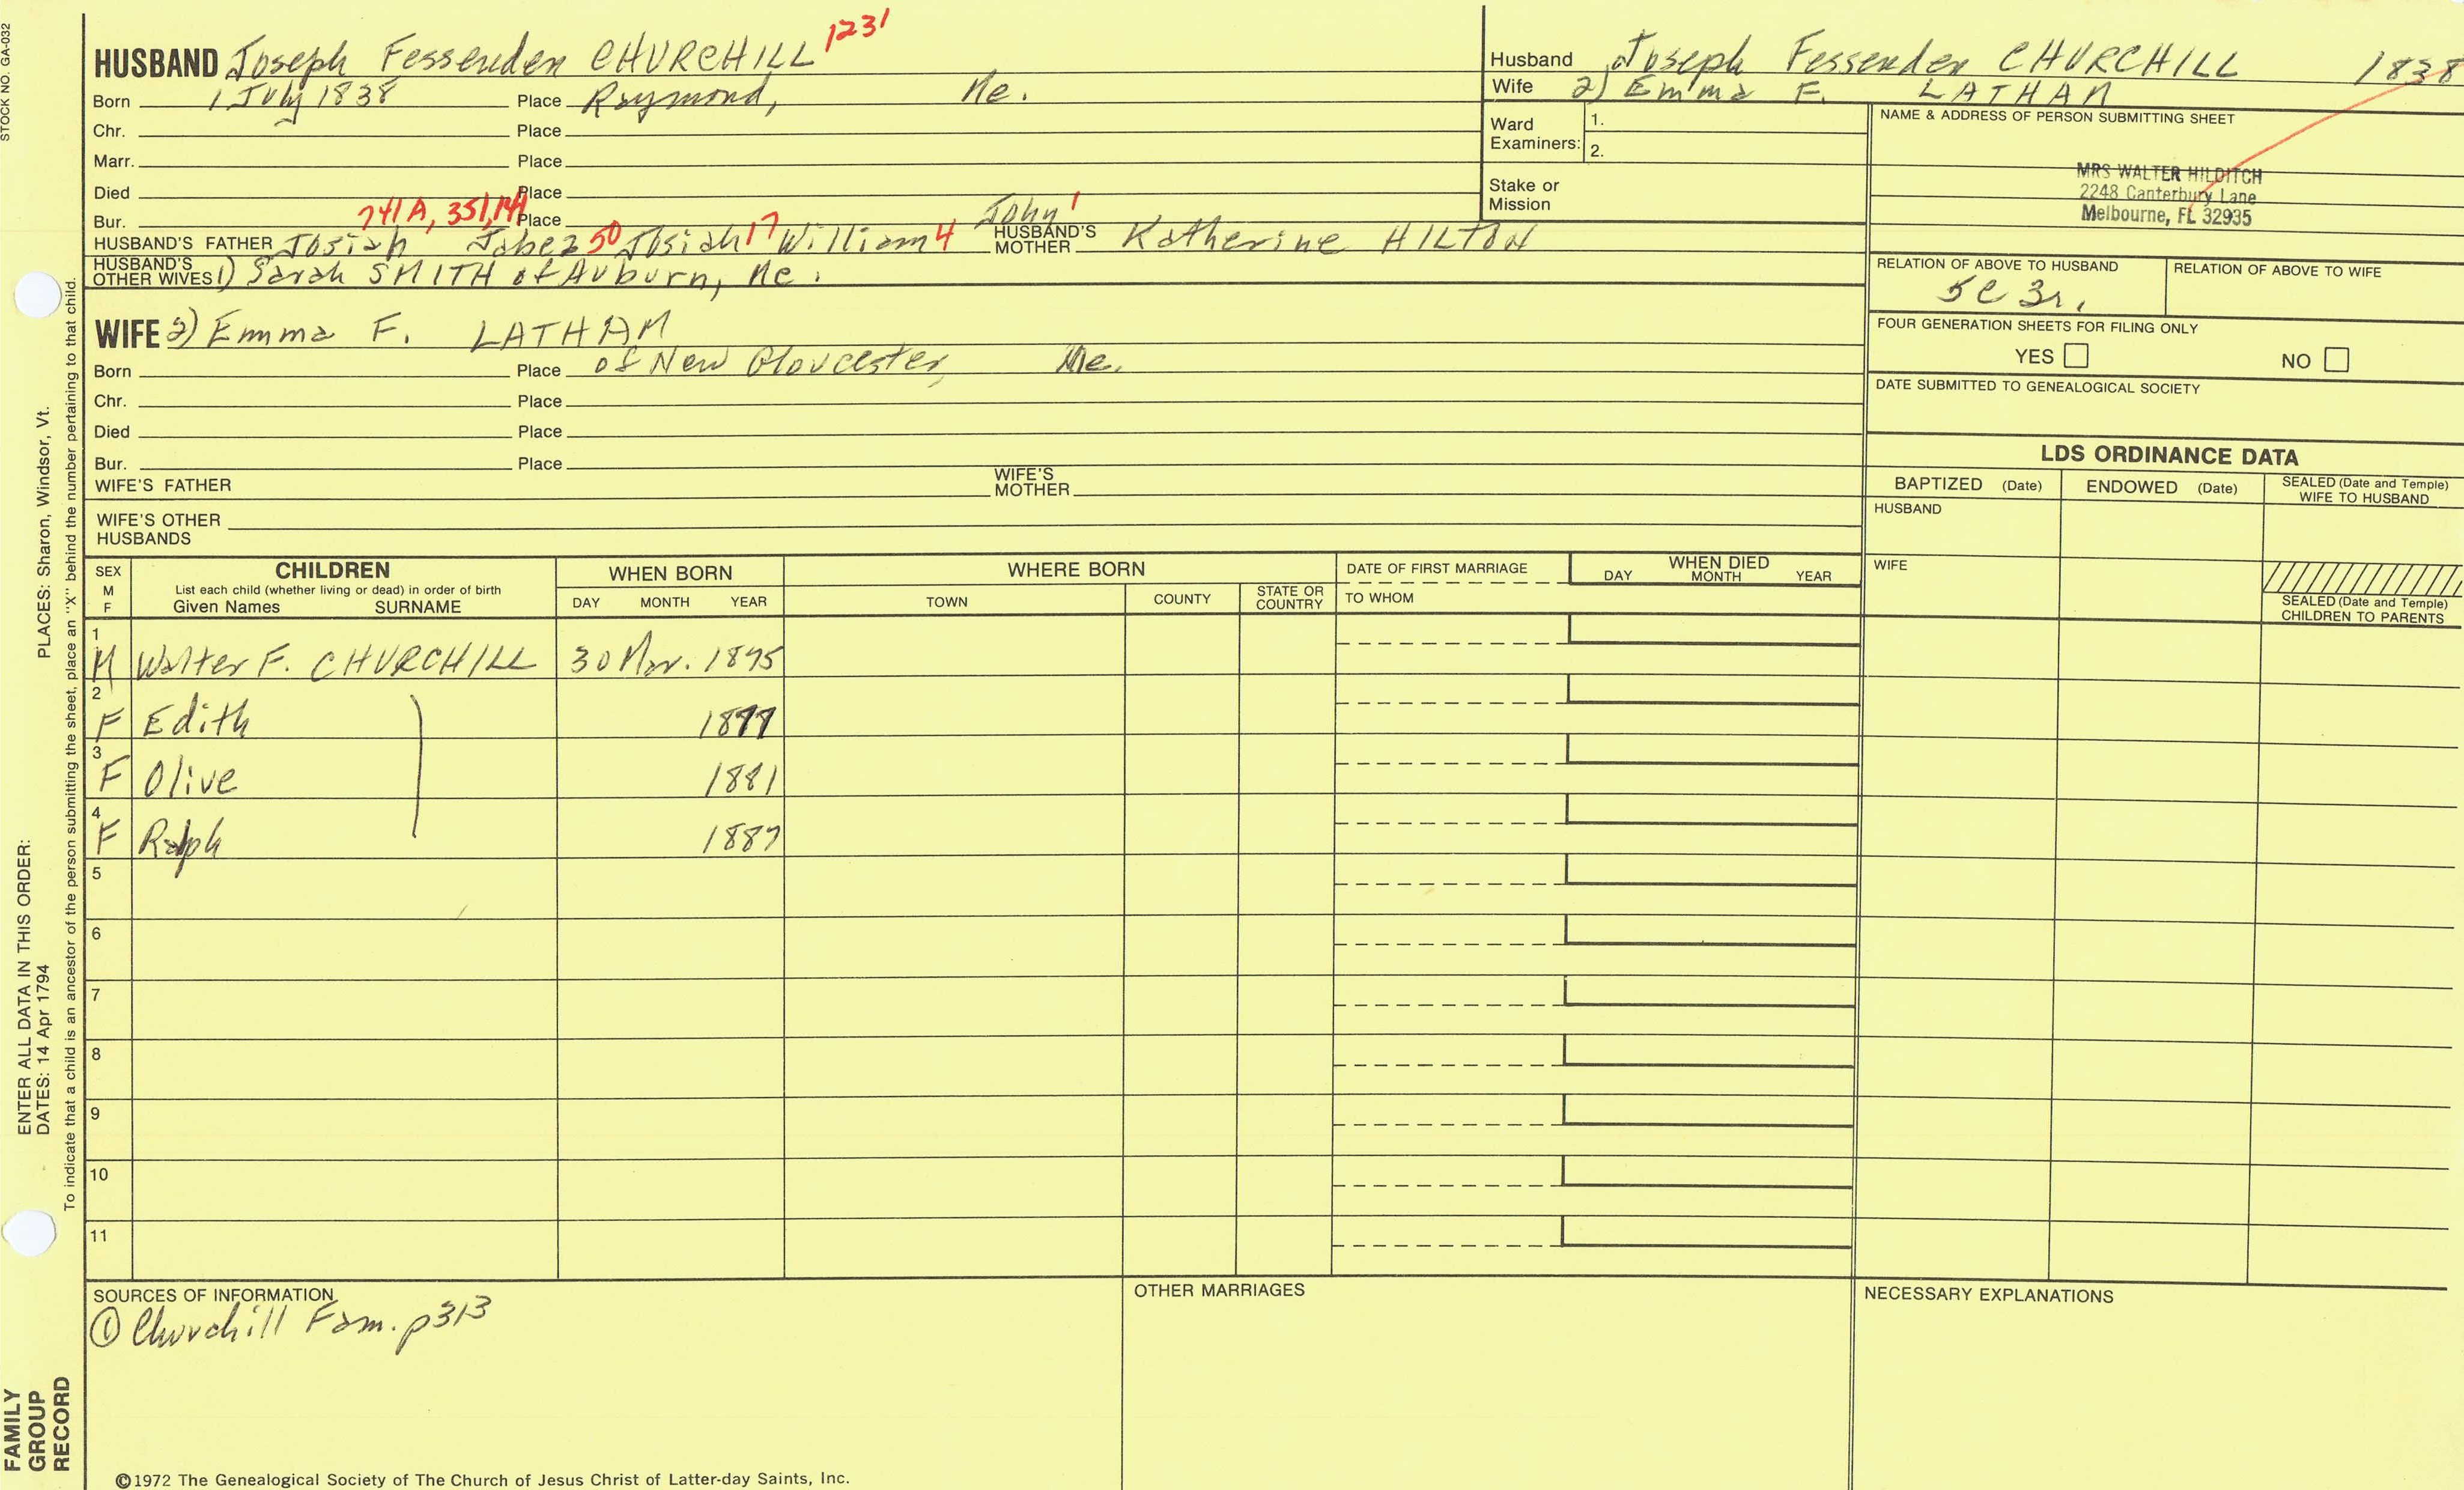 STOCK NO. GA-032
HUSBAND Joseph Fessenden CHURCHILL 1231
Born 1 July 1838 Place Raymond, Me.
Chr. Place
Marr. Place
Died Place
Bur. 741A, 351, 141 Place John 1
HUSBAND'S FATHER Josiah Jabez 50 Josiah 17 William 4 HUSBAND'S MOTHER Katherine HILTON
HUSBAND'S OTHER WIVES 1) Sarah SMITH of Auburn, Me.
WIFE 2) Emma F. LATHAM
Born Place of New Gloucester, Me.
Chr. Place
Died Place
Bur. Place
WIFE'S FATHER WIFE'S MOTHER
WIFE'S OTHER HUSBANDS
Husband Joseph Fessenden CHURCHILL 1838
Wife 2) Emma F. LATHAM
Ward Examiners: 1.
2.
Stake or Mission
NAME & ADDRESS OF PERSON SUBMITTING SHEET
MRS WALTER HILDITCH
2248 Canterbury Lane
Melbourne, FL 32935
RELATION OF ABOVE TO HUSBAND RELATION OF ABOVE TO WIFE
5C 3r.
FOUR GENERATION SHEETS FOR FILING ONLY
YES NO
DATE SUBMITTED TO GENEALOGICAL SOCIETY
LDS ORDINANCE DATA
BAPTIZED (Date) ENDOWED (Date) SEALED (Date and Temple) WIFE TO HUSBAND
HUSBAND
WIFE
SEALED (Date and Temple) CHILDREN TO PARENTS
SEX M F CHILDREN WHEN BORN WHERE BORN DATE OF FIRST MARRIAGE WHEN DIED
List each child (whether living or dead) in order of birth
Given Names SURNAME DAY MONTH YEAR TOWN COUNTY STATE OR COUNTRY TO WHOM DAY MONTH YEAR
1 M Walter F. CHURCHILL 30 Mar. 1875
2 F Edith 1877
3 F Olive 1881
4 F Ralph 1887
5
6
7
8
9
10
11
SOURCES OF INFORMATION OTHER MARRIAGES NECESSARY EXPLANATIONS
① Churchill Fam. p313
©1972 The Genealogical Society of The Church of Jesus Christ of Latter-day Saints, Inc.
PLACES: Sharon, Windsor, Vt.
ENTER ALL DATA IN THIS ORDER:
DATES: 14 Apr 1794
To indicate that a child is an ancestor of the person submitting the sheet, place an "X" behind the number pertaining to that child.
FAMILY
GROUP
RECORD